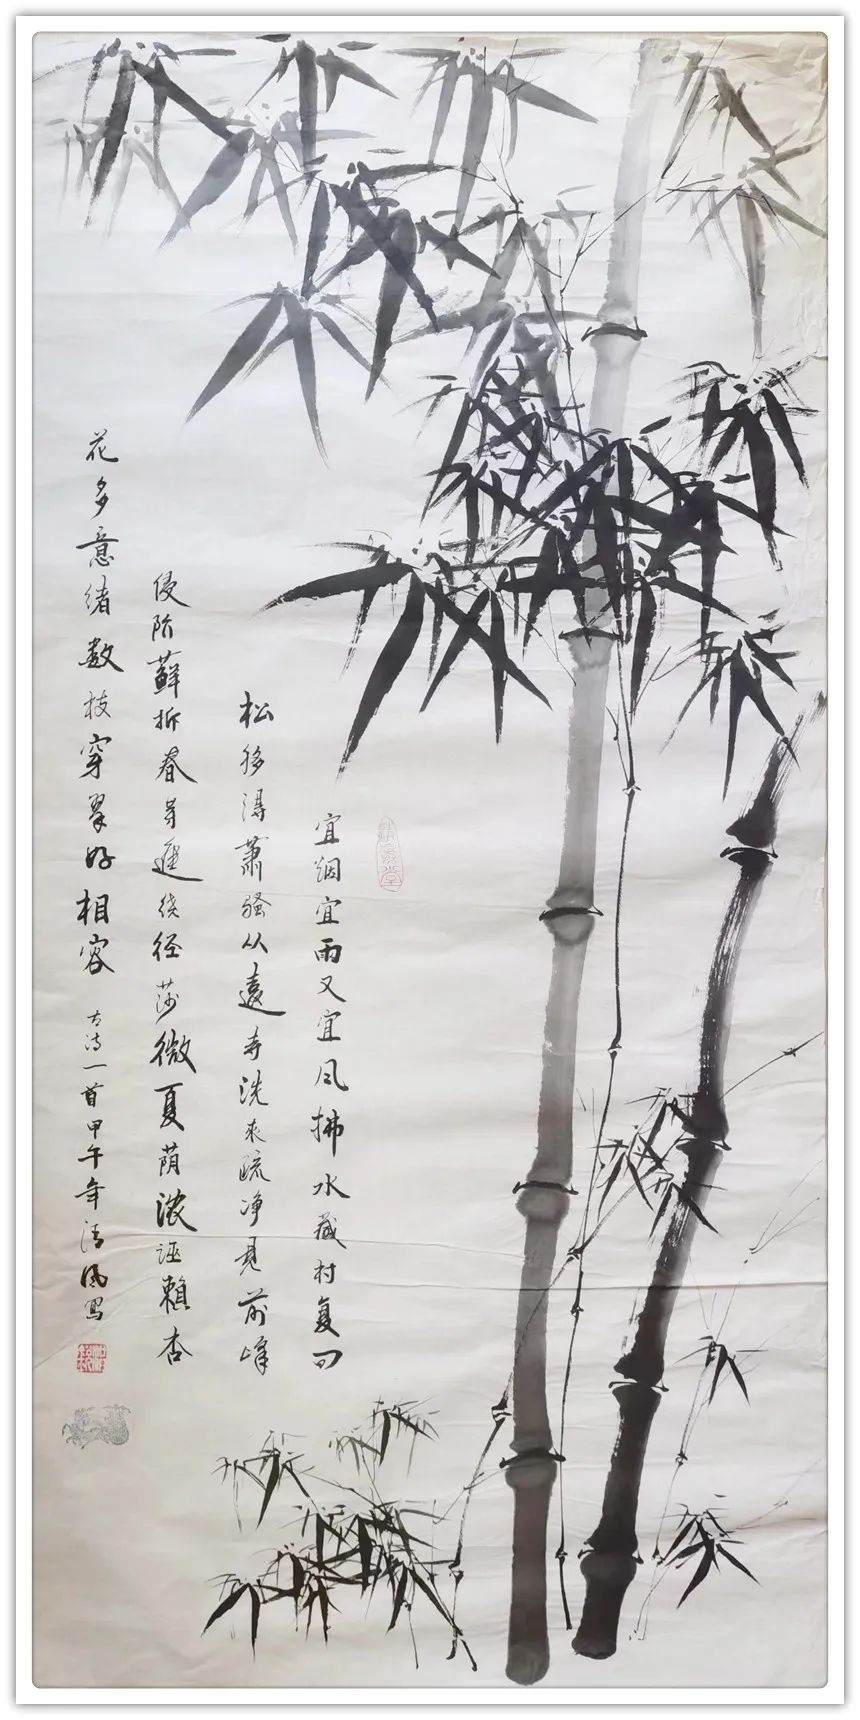 宜烟宜雨又宜风拂水藏村复间
松移得萧骚从遠寺洗来疏净見前峰
侵阶蘚拆春芽迸绕径莎微夏荫浓无賴杏
花多意绪数枝穿翠好相容 古诗一首甲午年清风写